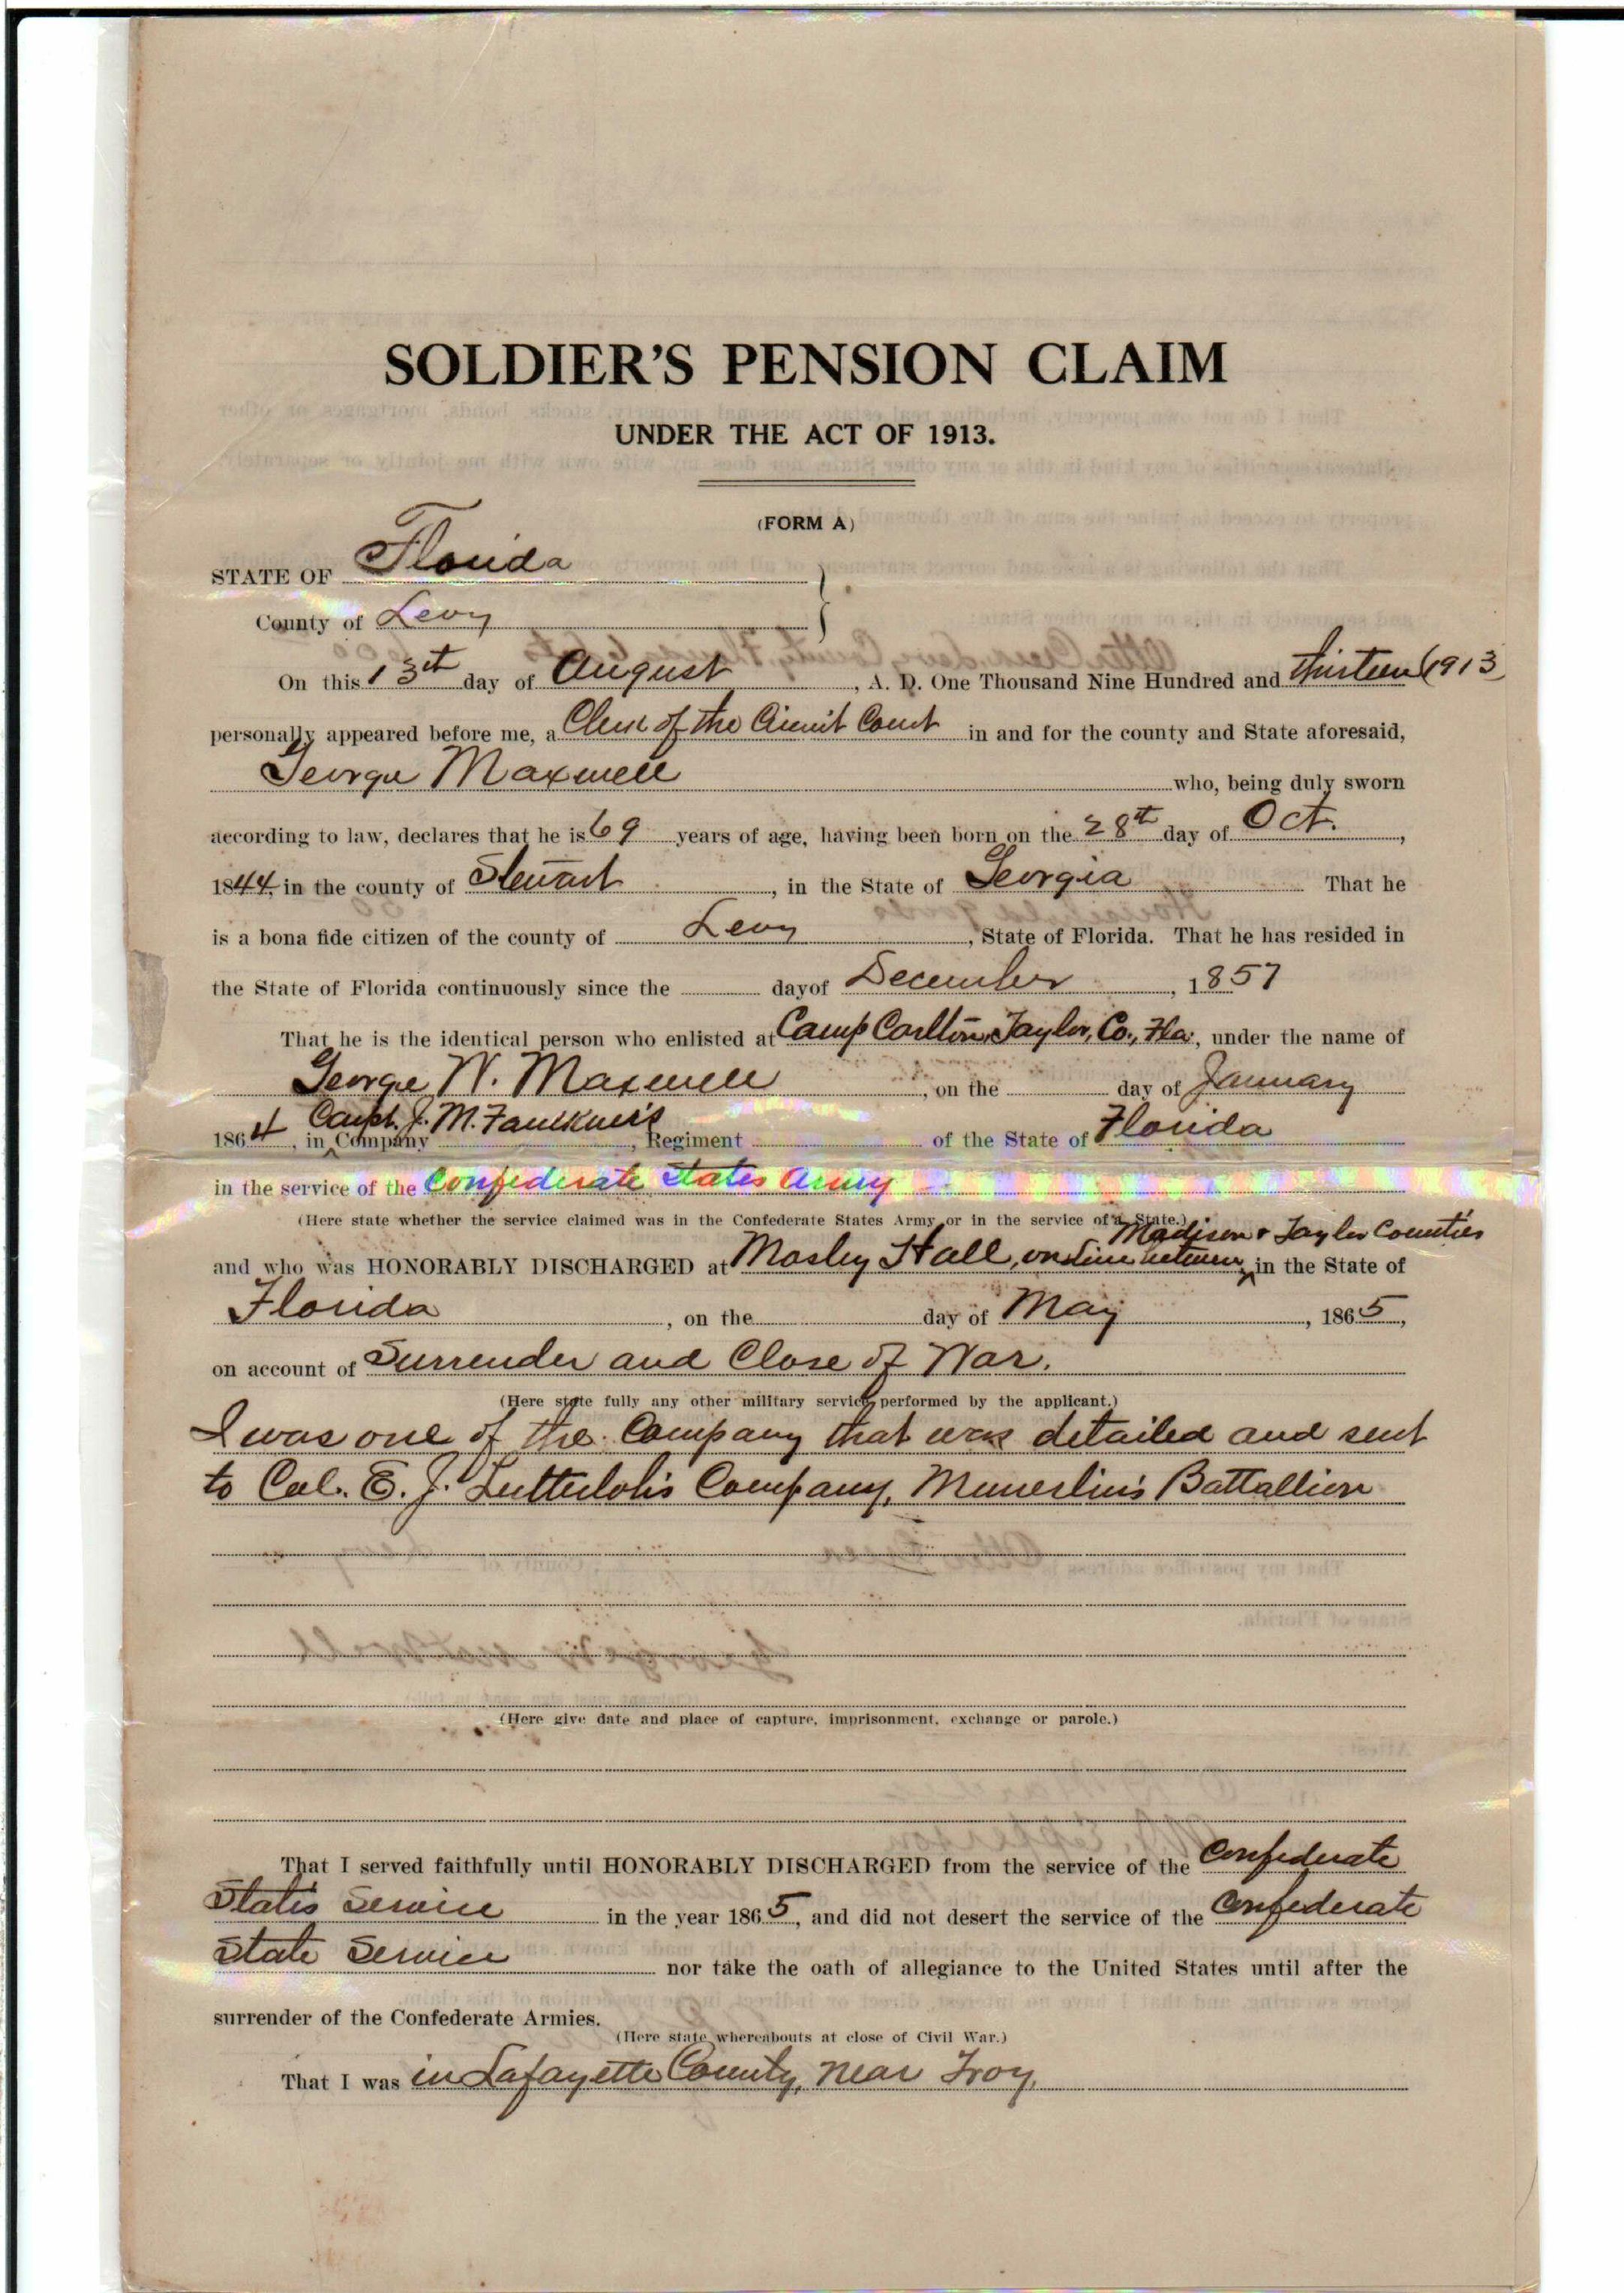 SOLDIER'S PENSION CLAIM
UNDER THE ACT OF 1913.
(FORM A)
STATE OF Florida
County of Levy
On this 13th day of August, A. D. One Thousand Nine Hundred and thirteen (1913
personally appeared before me, a Clerk of the Circuit Court in and for the county and State aforesaid,
George Maxwell who, being duly sworn
according to law, declares that he is 69 years of age, having been born on the 28th day of Oct.,
1844, in the county of Stewart, in the State of Georgia That he
is a bona fide citizen of the county of Levy, State of Florida. That he has resided in
the State of Florida continuously since the day of December, 1857
That he is the identical person who enlisted at Camp Carlton, Taylor, Co., Fla., under the name of
George W. Maxwell, on the day of January
1864, in Capt. J. M. Faulkner's Company, Regiment of the State of Florida
in the service of the Confederate States Army
(Here state whether the service claimed was in the Confederate States Army or in the service of a State.)
and who was HONORABLY DISCHARGED at Mosley Hall, on line between Madison & Taylor Counties in the State of
Florida, on the day of May, 1865,
on account of Surrender and Close of War.
(Here state fully any other military service performed by the applicant.)
I was one of the Company that was detailed and sent
to Cal. E. J. Lutterloh's Company, Munerlin's Battallion
(Here give date and place of capture, imprisonment, exchange or parole.)
That I served faithfully until HONORABLY DISCHARGED from the service of the Confederate
States Service in the year 1865, and did not desert the service of the Confederate
State Service nor take the oath of allegiance to the United States until after the
surrender of the Confederate Armies.
(Here state whereabouts at close of Civil War.)
That I was in Lafayette County, near Troy.